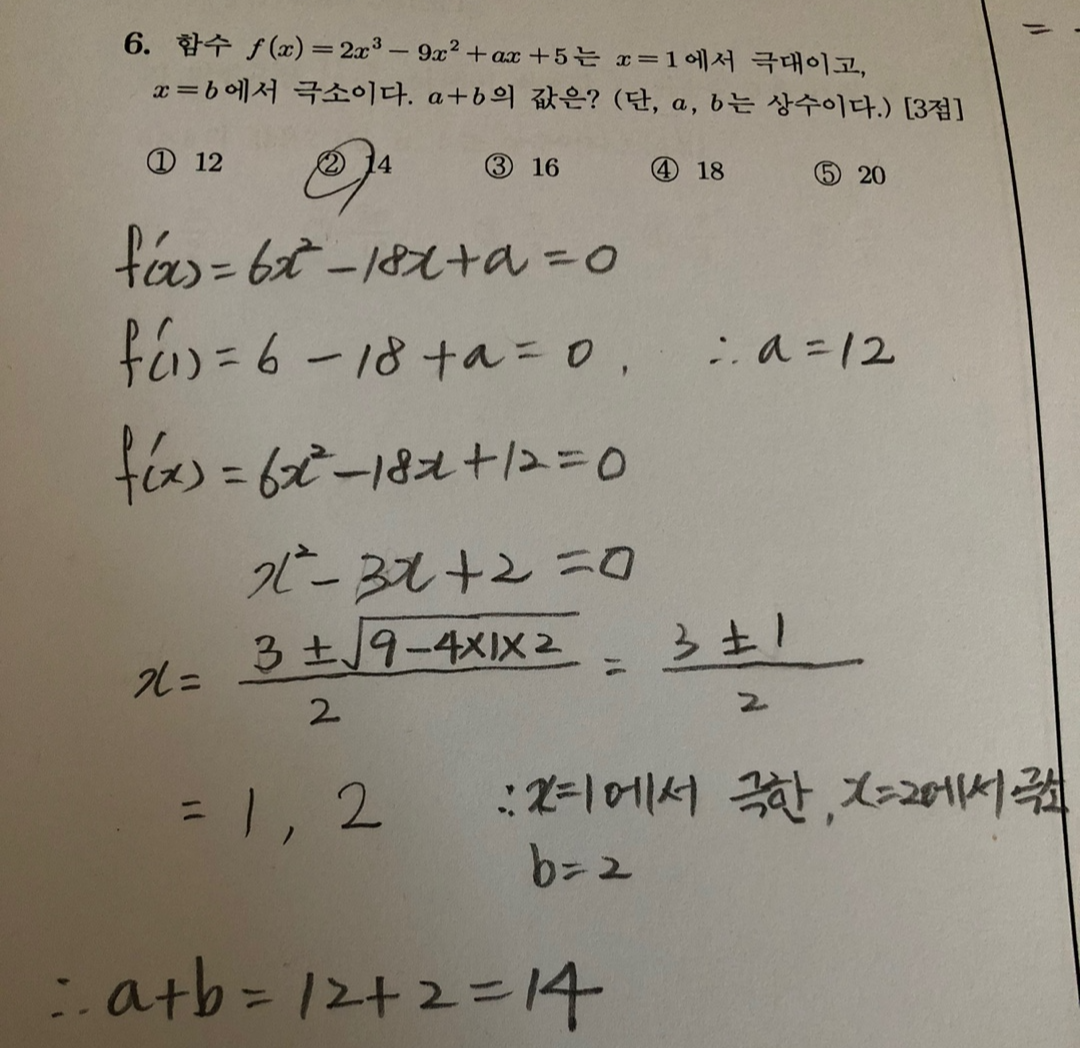 6. 함수 f(x)=2x³-9x²+ax+5는 x=1에서 극대이고,
x=b에서 극소이다. a+b의 값은? (단, a, b는 상수이다.) [3점]
① 12 ② 14 ③ 16 ④ 18 ⑤ 20
f'(x)=6x²-18x+a=0
f'(1)=6-18+a=0, ∴a=12
f'(x)=6x²-18x+12=0
x²-3x+2=0
x= (3±√(9-4×1×2))/2 = (3±1)/2
=1, 2 ∴x=1에서 극한, x=2에서 극소
b=2
∴a+b=12+2=14